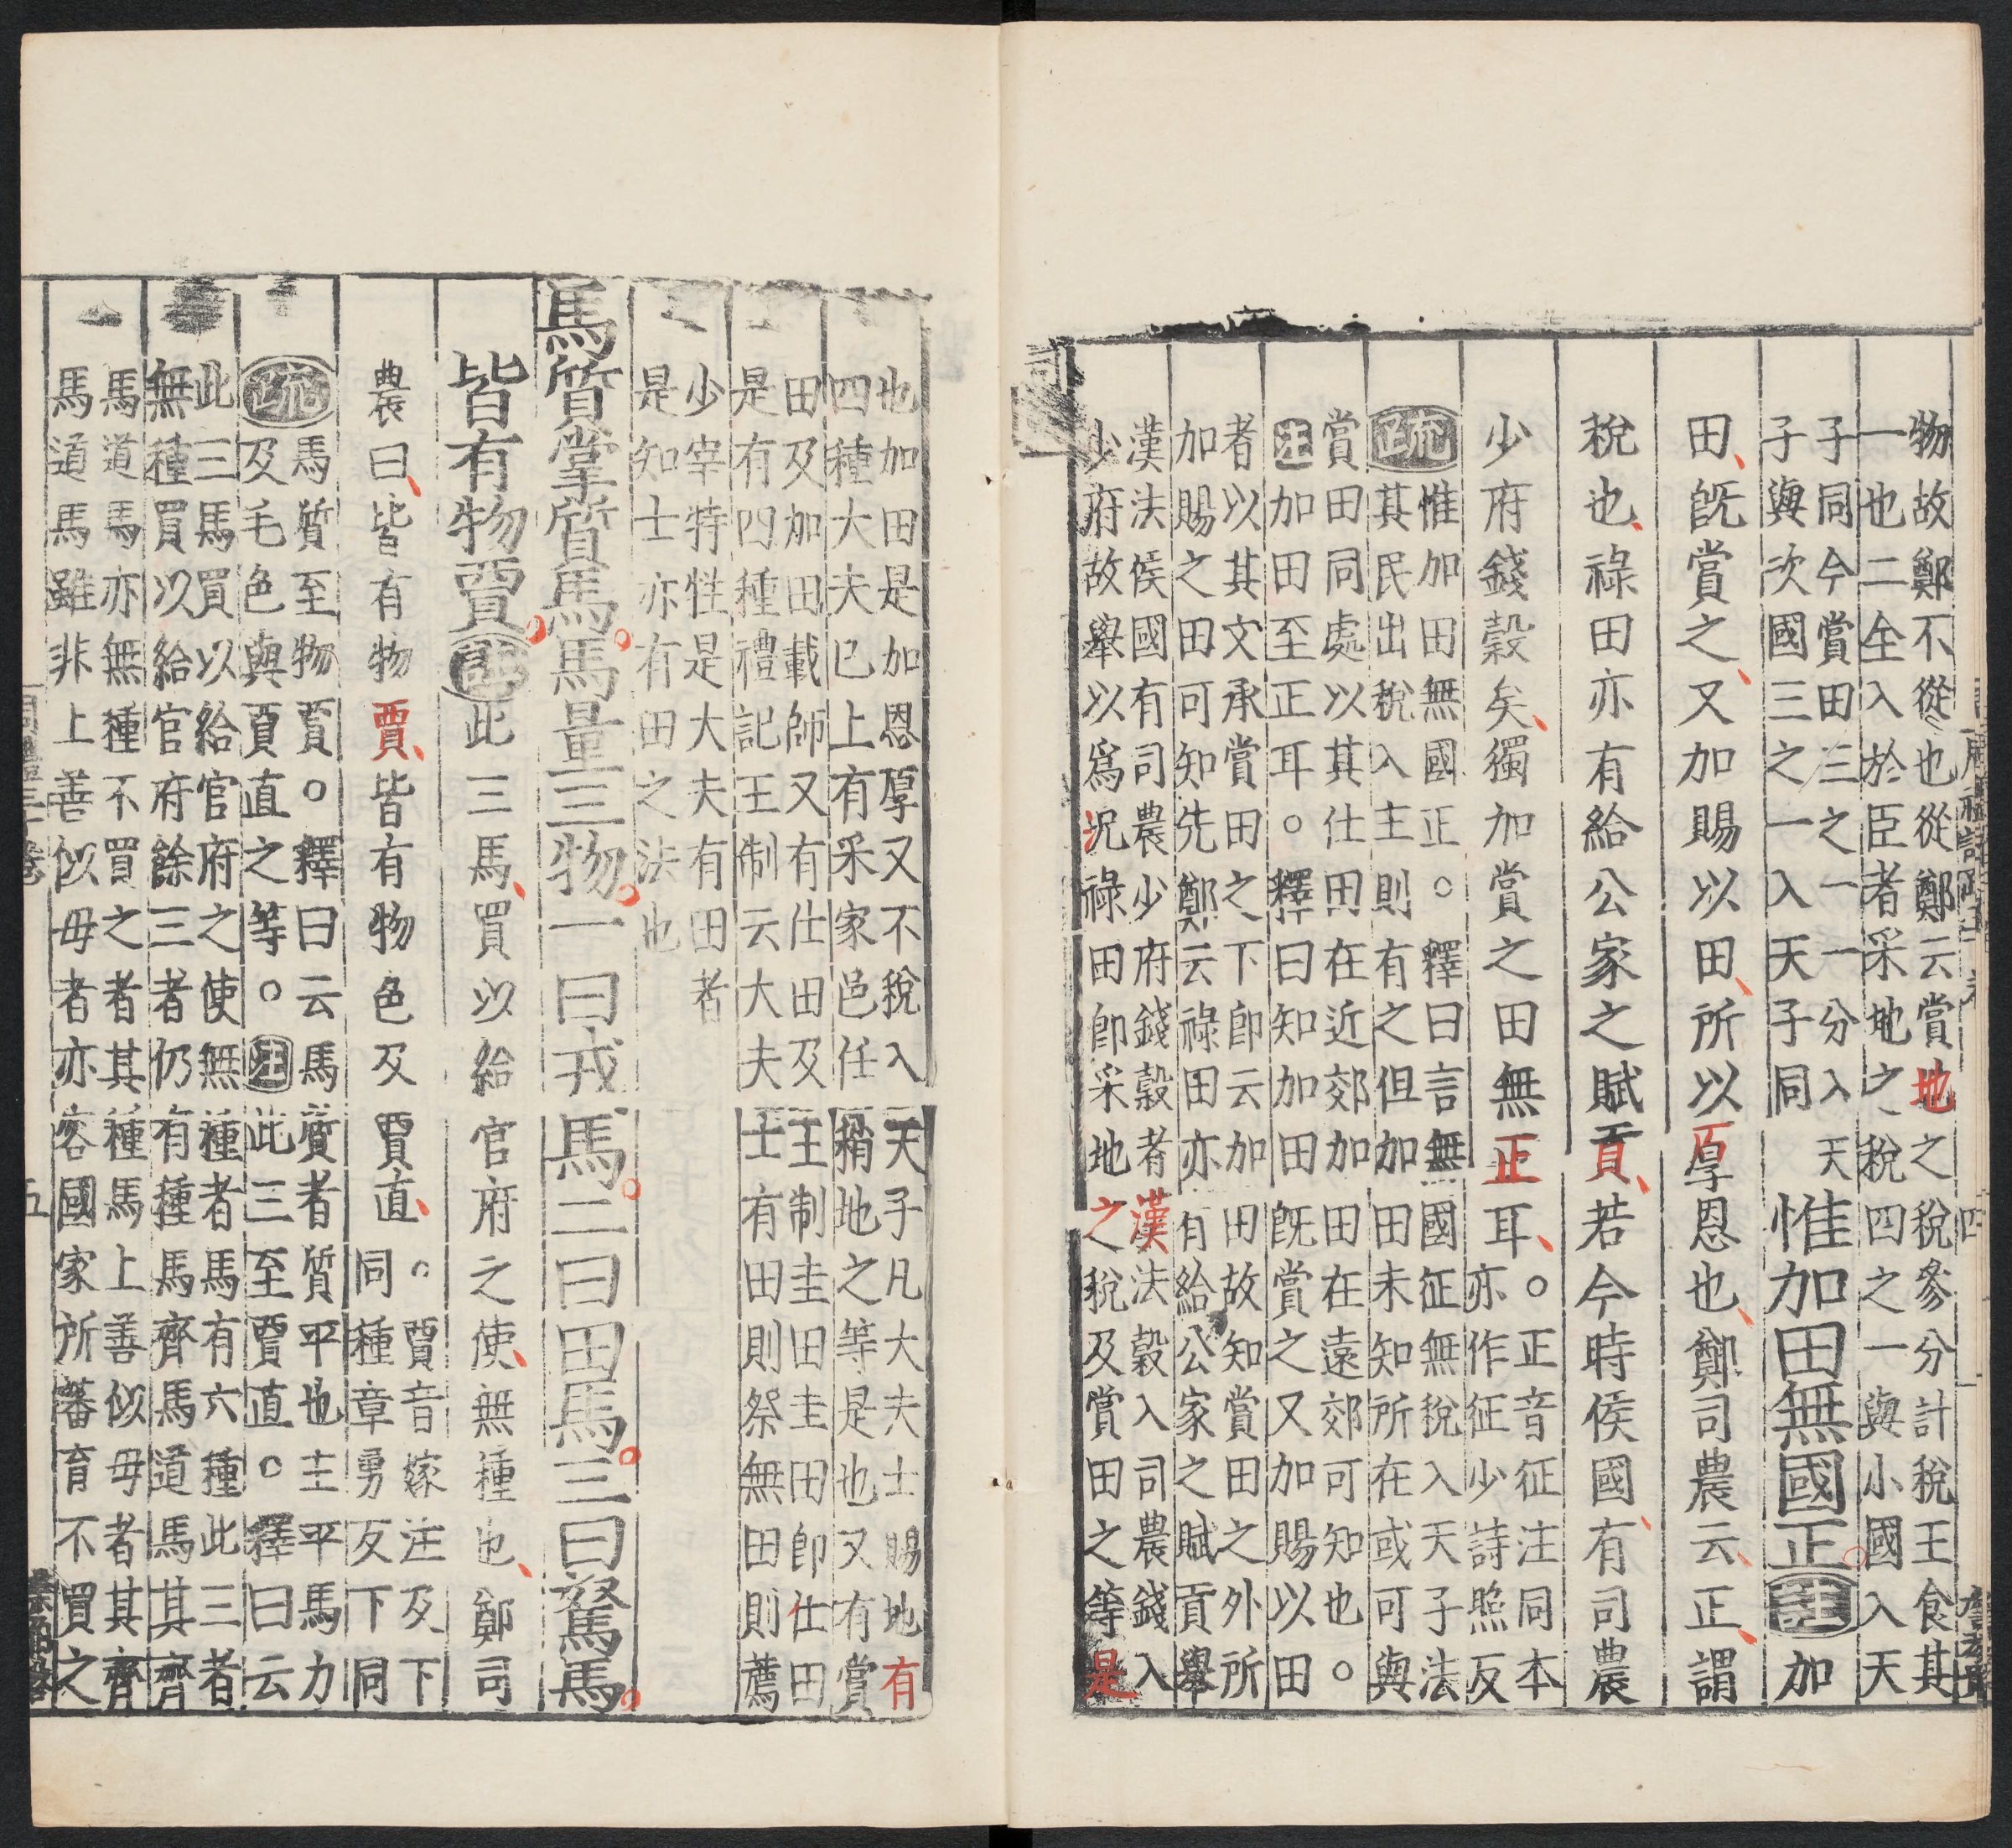 物故鄭不從也從鄭云賞地之稅參分計稅王食其
一也二全入於臣者采地之稅四之一與小國入天
子同今賞田三之一一分入天
子與次國三之一入天子同
惟加田無國正注加
田既賞之又加賜以田所以厚恩也鄭司農云正謂
稅也祿田亦有給公家之賦貢若今時侯國有司農
少府錢穀矣獨加賞之田無正耳。正音征注同本
亦作征少詩照反
疏惟加田無國正。釋曰言無國征無稅入天子法
其民出稅入主則有之但加田未知所在或可與
賞田同處以其仕田在近郊加田在遠郊可知也。
注加田至正耳。釋曰知加田既賞之又加賜以田
者以其文承賞田之下即云加田故知賞田之外所
加賜之田可知先鄭云祿田亦有給公家之賦貢舉
漢法侯國有司農少府錢穀者漢法穀入司農錢入
少府故舉以爲況祿田即采地之稅及賞田之等是
也加田是加恩厚又不稅入天子凡大夫士賜地有
四種大夫已上有采家邑任稍地之等是也又有賞
田及加田載師又有仕田及王制圭田圭田即仕田
是有四種禮記王制云大夫士有田則祭無田則薦
少宰特牲是大夫有田者
是知士亦有田之法也
馬質掌質馬馬量三物一曰戎馬二曰田馬三曰駑馬
皆有物賈注此三馬買以給官府之使無種也鄭司
農曰皆有物賈皆有物色及賈直。賈音嫁注及下
同種章勇反下同
疏馬質至物賈。釋曰云馬質者質平也主平馬力
及毛色與賈直之等。注此三至賈直。釋曰云
此三馬買以給官府之使無種者馬有六種此三者
無種買以給官府餘三者仍有種馬齊馬道馬其齊
馬道馬亦無種不買之者其種馬上善似母者其齊
馬道馬雖非上善似母者亦容國家所蕃育不買之